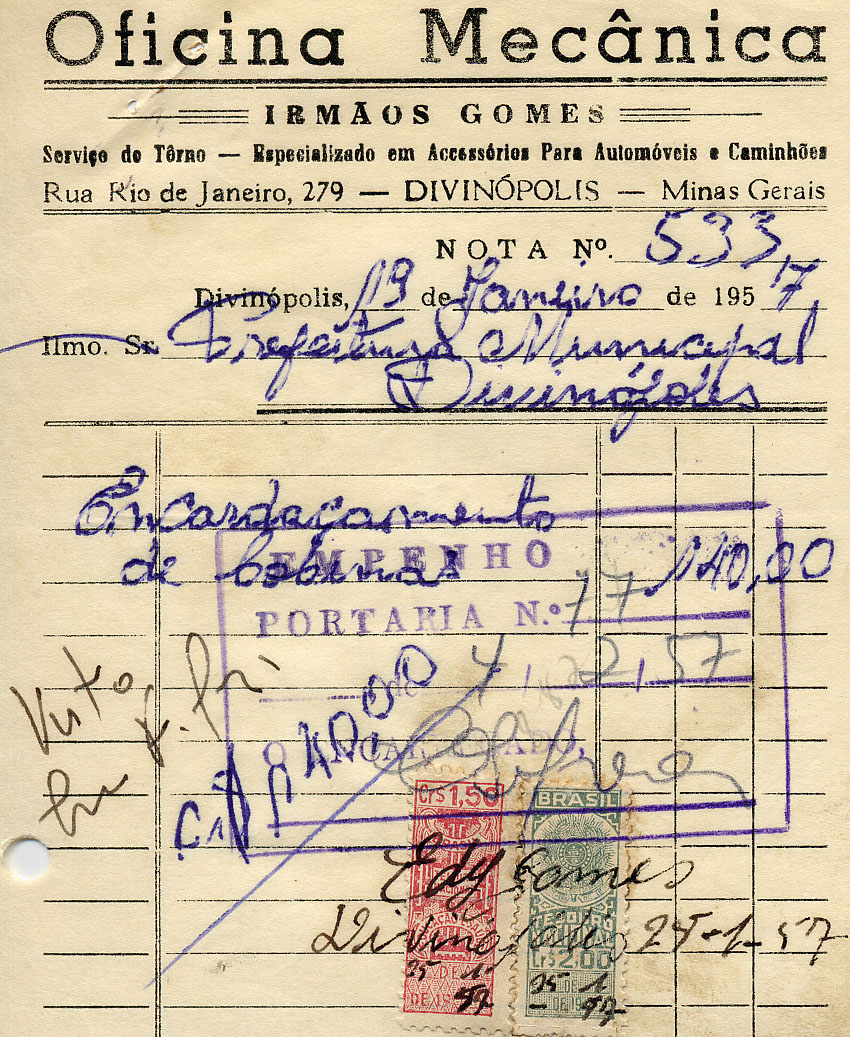 Oficina Mecânica
IRMÃOS GOMES
Serviço de Tôrno — Especializado em Accessórios Para Automóveis e Caminhões
Rua Rio de Janeiro, 279 — DIVINÓPOLIS — Minas Gerais
NOTA Nº. 533,
Divinópolis, 19 de Janeiro de 1957,
Ilmo. Sr. Prefeitura Municipal
Divinópoles
Encardaçamento
de bobinas 140,00
EMPENHO
PORTARIA N.º 17
de 4 / 2 / 57
O ENCARREGADO,
Visto
Cr$ 140,00
Cr$ 1,50
BRASIL
Edy Gomes
Divinópolis 25-1-57
Cr$ 2,00
25 DE 1 DE 1957
25 DE 1 DE 1957